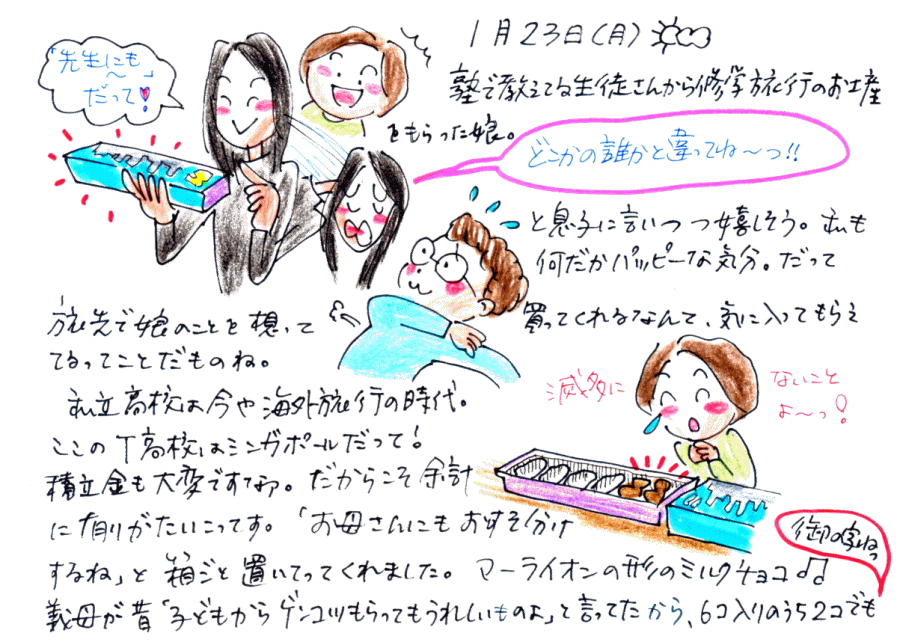 1月23日(月)
「先生にも
〜」
だって!
塾で教えてる生徒さんから修学旅行のお土産
をもらった娘。
どこかの誰かと違ってね〜っ!!
と息子に言いつつ嬉しそう。私も
何だかハッピーな気分。だって
旅先で娘のことを想って
買ってくれるなんて、気に入ってもらえ
てるってことだものね。
滅多に
ないこと
よ〜っ!
私立高校は今や海外旅行の時代。
ここのT高校はシンガポールだって!
積立金も大変ですなァ。だからこそ余計
に有りがたいこってす。「お母さんにもおすそ分け
するね」と箱ごと置いてってくれました。マーライオンの形のミルクチョコ♫
御の字ねっ
義母が昔「子どもからゲンコツもらってもうれしいものよ」と言ってたから、6コ入りのうち2コでも